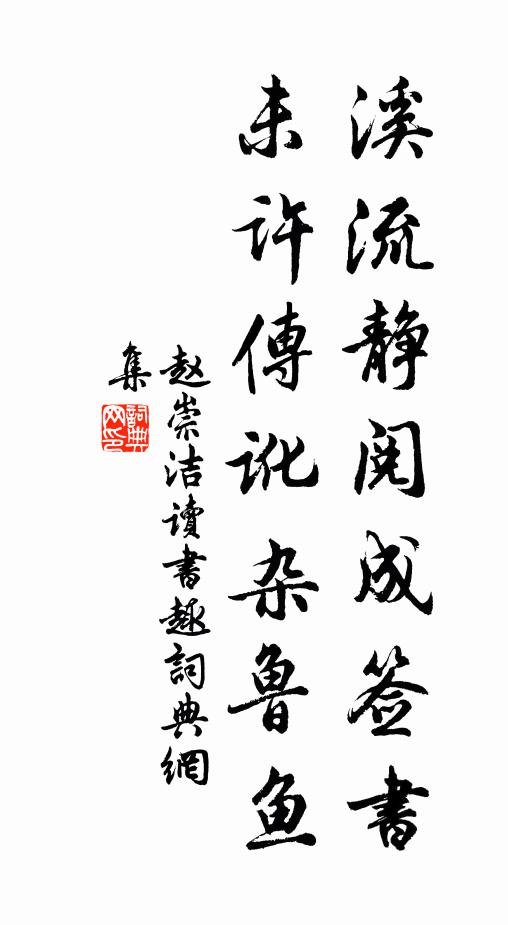 溪流静阅成签書
未许傳讹杂魯鱼
赵崇洁读書趣詞典網
集
詞典网印